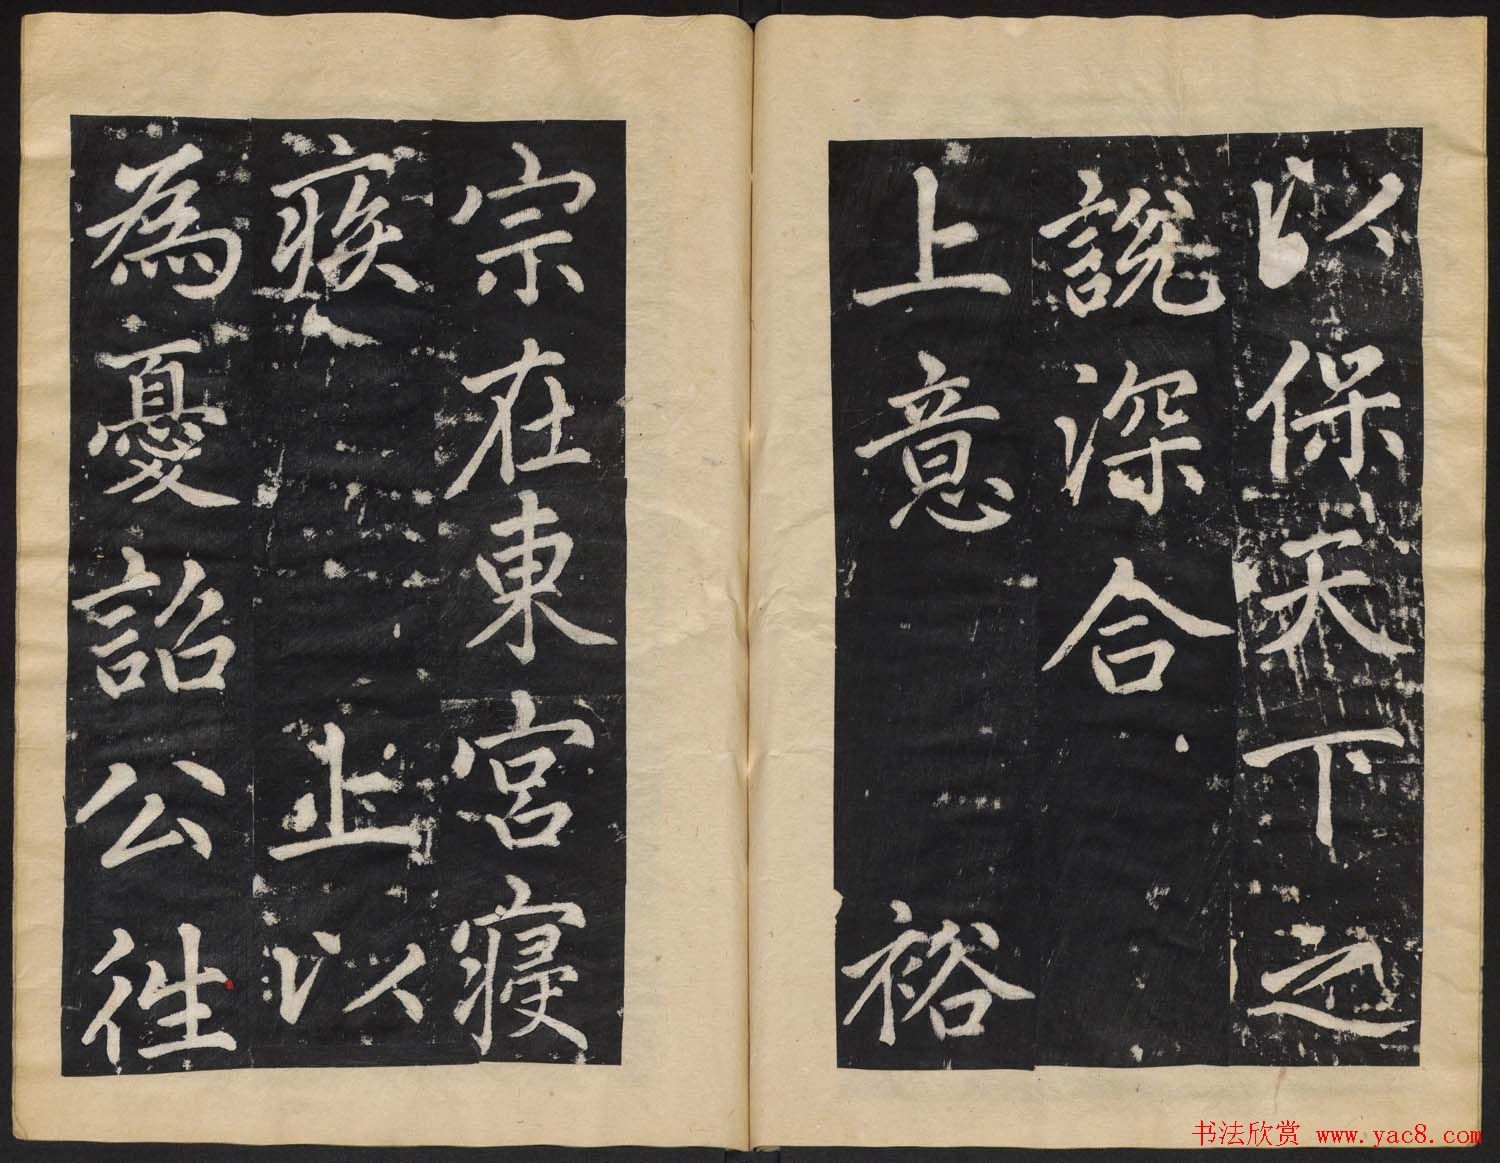 以保天下之
說深合
上意 裕
宗在東宮寢
疾 上以
為憂詔公往
书法欣赏 www.yac8.com